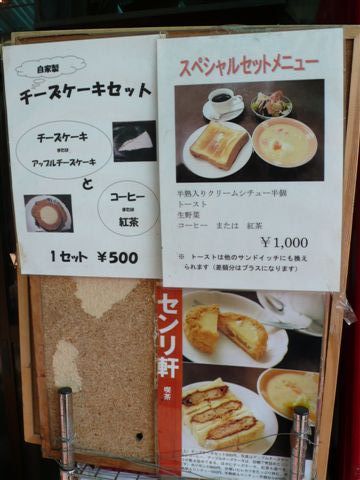 自家製
チーズケーキセット
チーズケーキ
または
アップルチーズケーキ
と
コーヒー
または
紅茶
1セット ¥500
スペシャルセットメニュー
半熟入りクリームシチュー半個
トースト
生野菜
コーヒー または 紅茶
¥1,000
※ トーストは他のサンドイッチにも換え
られます（差額分はプラスになります）
センリ軒
喫茶